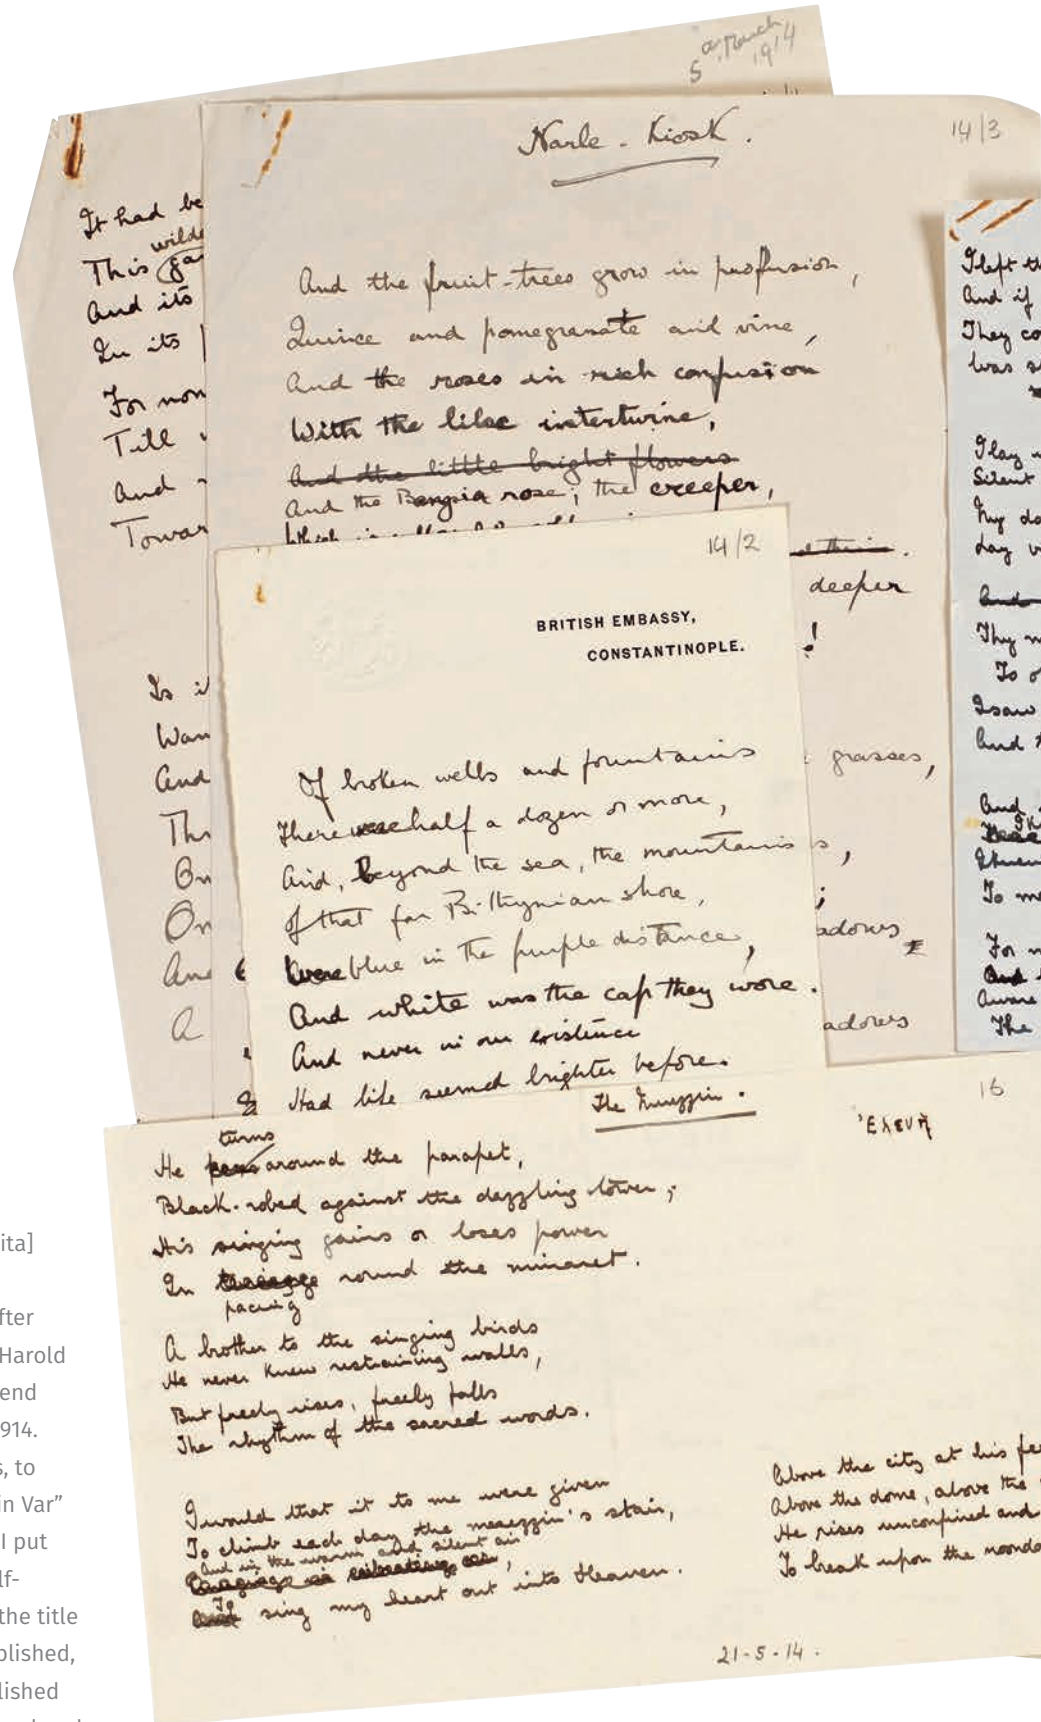 March
1914
5
Narle - Kiosk.
14/3
It had be
wilde
This ga
And its
In its
For non
Till
And
Towar
And the fruit-trees grow in profusion,
Quince and pomegranate and vine,
And the roses in rich confusion
With the lilac intertwine,
And the little bright flowers
And the Banksia rose, the creeper,
Which is
deeper
!
grasses,
s,
;
adows
adows
Is it
Wan
And
Th
On
On
And
A
14/2
BRITISH EMBASSY,
CONSTANTINOPLE.
Of broken wells and fountains
There were half a dozen or more,
And, beyond the sea, the mountains
Of that far Bithynian shore,
Were blue in the purple distance,
And white was the cap they wore.
And never in our existence
Had life seemed brighter before.
I left th
And if
They co
Was s
I lay
Silent
My do
Lay
And
Thy
To
I saw
And
And
To me
For
And
Aware
The
16
The Muezzin.
turns
He around the parapet,
Black-robed against the dazzling tower;
His singing gains or loses power
In round the minaret.
pacing
A brother to the singing birds
He never knew restraining walls,
But freely rises, freely falls
The rhythm of the sacred words.
I would that it to me were given
To climb each day the muezzin's stair,
And in the warm and silent air
To
And sing my heart out into Heaven.
Above the city at his fe
Above the dome, above the
He rises unconfined and
To break upon the noonda
21-5-14.
ita]
fter
Harold
end
914.
s, to
in Var”
I put
lf-
the title
blished,
lished